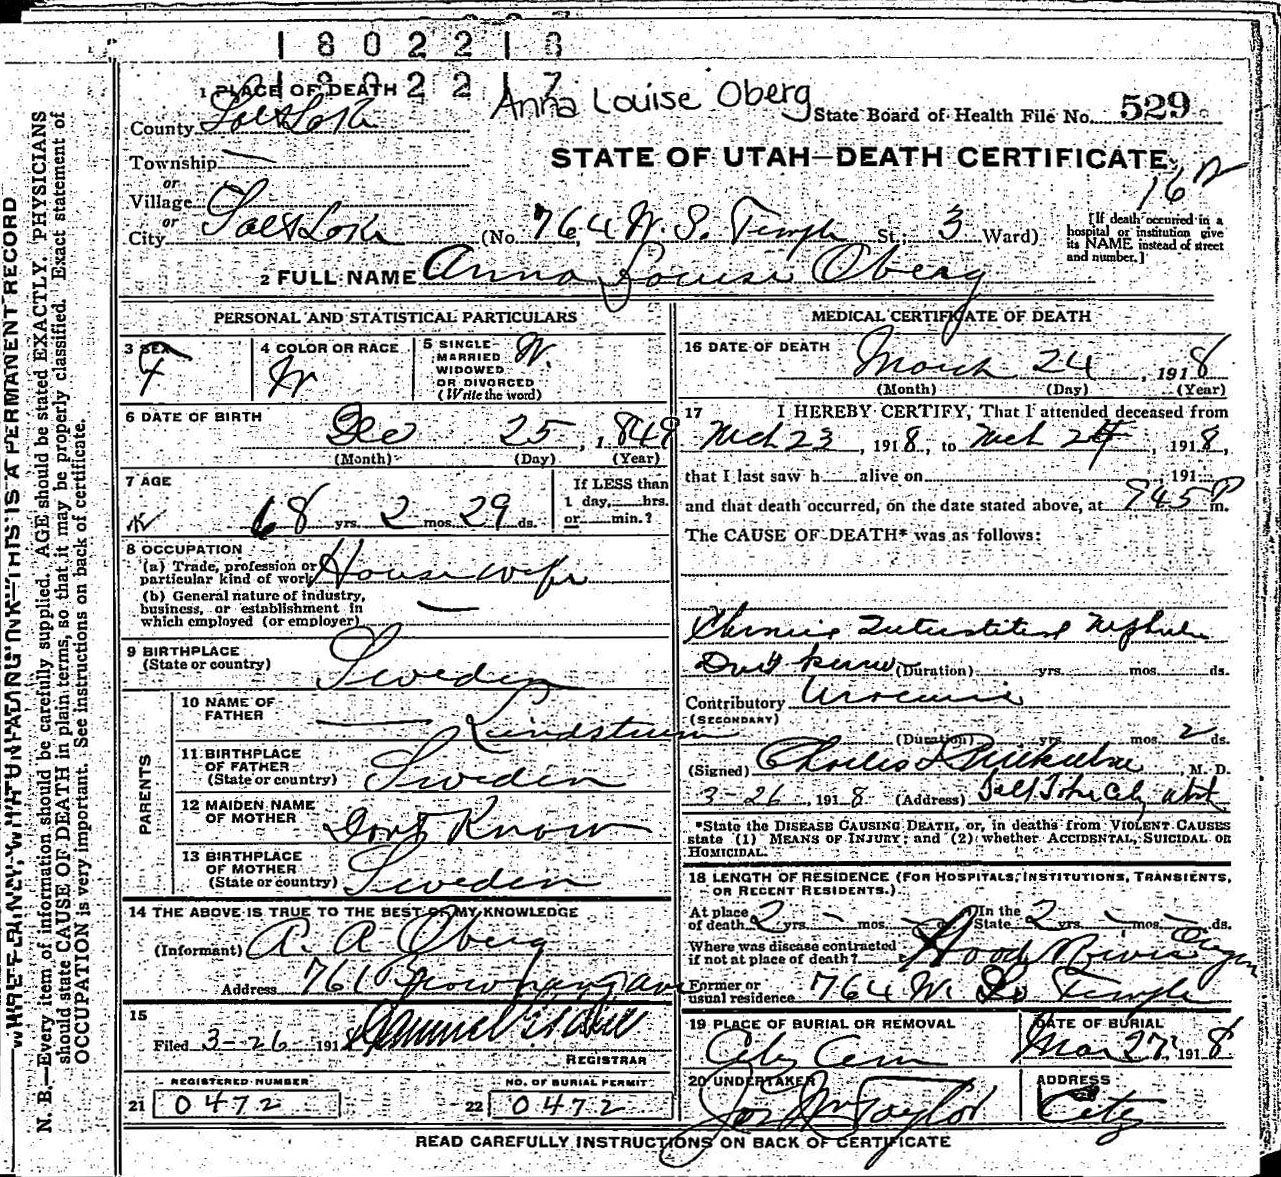 1802218
1802217
1 PLACE OF DEATH
Anna Louise Oberg
State Board of Health File No. 529
County Salt Lake
STATE OF UTAH—DEATH CERTIFICATE
Township —
or
Village
or
City Salt Lake (No. 764 W. S. Temple St; 3 Ward)
[If death occurred in a hospital or institution give its NAME instead of street and number.]
2 FULL NAME Anna Louise Oberg
PERSONAL AND STATISTICAL PARTICULARS
3 SEX F
4 COLOR OR RACE W
5 SINGLE MARRIED WIDOWED OR DIVORCED (Write the word) W.
6 DATE OF BIRTH Dec 25, 1849
(Month) (Day) (Year)
7 AGE 68 yrs. 2 mos. 29 ds.
If LESS than 1 day, hrs. or min.?
8 OCCUPATION
(a) Trade, profession or particular kind of work House wife
(b) General nature of industry, business, or establishment in which employed (or employer) —
9 BIRTHPLACE (State or country) Sweden
PARENTS
10 NAME OF FATHER —
11 BIRTHPLACE OF FATHER (State or country) Sweden
12 MAIDEN NAME OF MOTHER Dont Know
13 BIRTHPLACE OF MOTHER (State or country) Sweden
14 THE ABOVE IS TRUE TO THE BEST OF MY KNOWLEDGE
(Informant) A. A Oberg
Address 761
15
Filed 3-26 1918
REGISTRAR
REGISTERED NUMBER
21 0472
NO. OF BURIAL PERMIT
22 0472
MEDICAL CERTIFICATE OF DEATH
16 DATE OF DEATH
March 24, 1918
(Month) (Day) (Year)
17 I HEREBY CERTIFY, That I attended deceased from
Mch 23, 1918, to Mch 24, 1918,
that I last saw h alive on , 191
and that death occurred, on the date stated above, at 945 P m.
The CAUSE OF DEATH* was as follows:
Chronic Interstitial Nephritis
Don't know (Duration) yrs. mos. ds.
Contributory Uraemia
(SECONDARY)
(Duration) yrs. mos. 2 ds.
(Signed) Charles M. D.
3-26, 1918 (Address) Salt Lake City Utah
*State the DISEASE CAUSING DEATH, or, in deaths from VIOLENT CAUSES state (1) MEANS OF INJURY; and (2) whether ACCIDENTAL, SUICIDAL OR HOMICIDAL.
18 LENGTH OF RESIDENCE (FOR HOSPITALS, INSTITUTIONS, TRANSIENTS, OR RECENT RESIDENTS.)
At place of death 2 yrs. - mos. ds. In the State 2 yrs. - mos. - ds.
Where was disease contracted if not at place of death? Hood River Oregon
Former or usual residence 764 W. So Temple
19 PLACE OF BURIAL OR REMOVAL
City Cem
DATE OF BURIAL
Mar 27, 1918
20 UNDERTAKER
Jos Wm Taylor
ADDRESS
City
READ CAREFULLY INSTRUCTIONS ON BACK OF CERTIFICATE
WRITE PLAINLY, WITH UNFADING INK—THIS IS A PERMANENT RECORD
N. B.—Every item of information should be carefully supplied. AGE should be stated EXACTLY. PHYSICIANS
should state CAUSE OF DEATH in plain terms, so that it may be properly classified. Exact statement of
OCCUPATION is very important. See instructions on back of certificate.